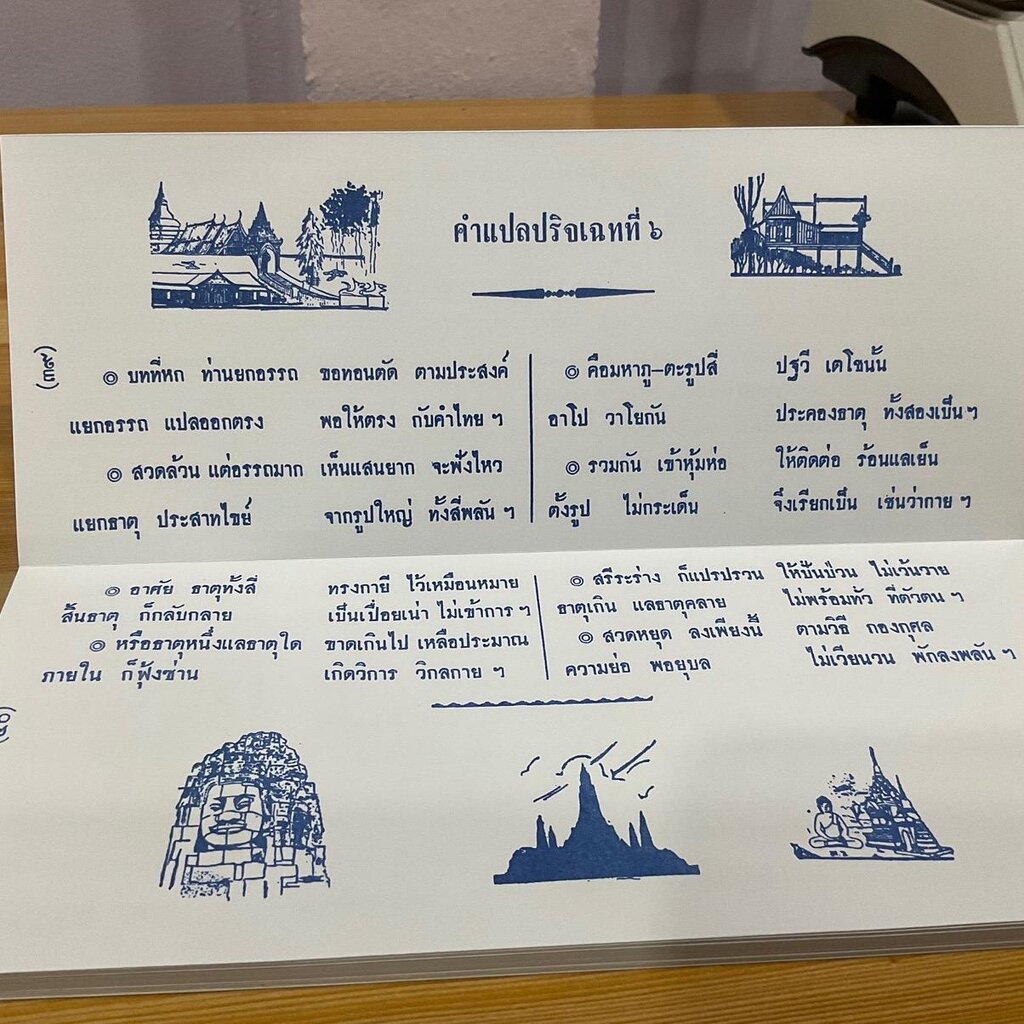 คำแปลปริจเฉทที่ ๖
(๓๙)
๏ บทที่หก ท่านยกอรรถ ขอทอนตัด ตามประสงค์
แยกอรรถ แปลออกตรง พอให้ตรง กับคำไทย ฯ
๏ สวดล้วน แต่อรรถมาก เห็นแสนยาก จะฟังไหว
แยกธาตุ ประสาทไขย์ จากรูปใหญ่ ทั้งสี่พลัน ฯ
๏ คือมหาภู-ตะรูปสี่ ปฐวี เตโชนั้น
อาโป วาโยกัน ประคองธาตุ ทั้งสองเป็น ฯ
๏ รวมกัน เข้าหุ้มห่อ ให้ติดต่อ ร้อนแลเย็น
ตั้งรูป ไม่กระเด็น จึ่งเรียกเป็น เช่นว่ากาย ฯ
๏ อาศัย ธาตุทั้งสี่ ทรงกายี ไว้เหมือนหมาย
สิ้นธาตุ ก็กลับกลาย เป็นเปื่อยเน่า ไม่เข้าการ ฯ
๏ หรือธาตุหนึ่งแลธาตุใด ขาดเกินไป เหลือประมาณ
ภายใน ก็ฟุ้งซ่าน เกิดวิการ วิกลกาย ฯ
๏ สรีระร่าง ก็แปรปรวน ให้ปั่นป่วน ไม่เว้นวาย
ธาตุเกิน แลธาตุคลาย ไม่พร้อมทัว ที่ตัวตน ฯ
๏ สวดหยุด ลงเพียงนี้ ตามวิธี กองกุศล
ความย่อ พอยุบล ไม่เวียนวน พักลงพลัน ฯ
(๔๐)